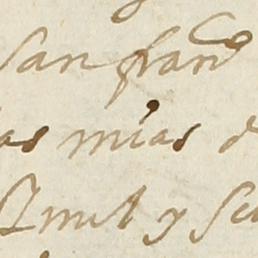 San fran^co
as mias d
mil y se